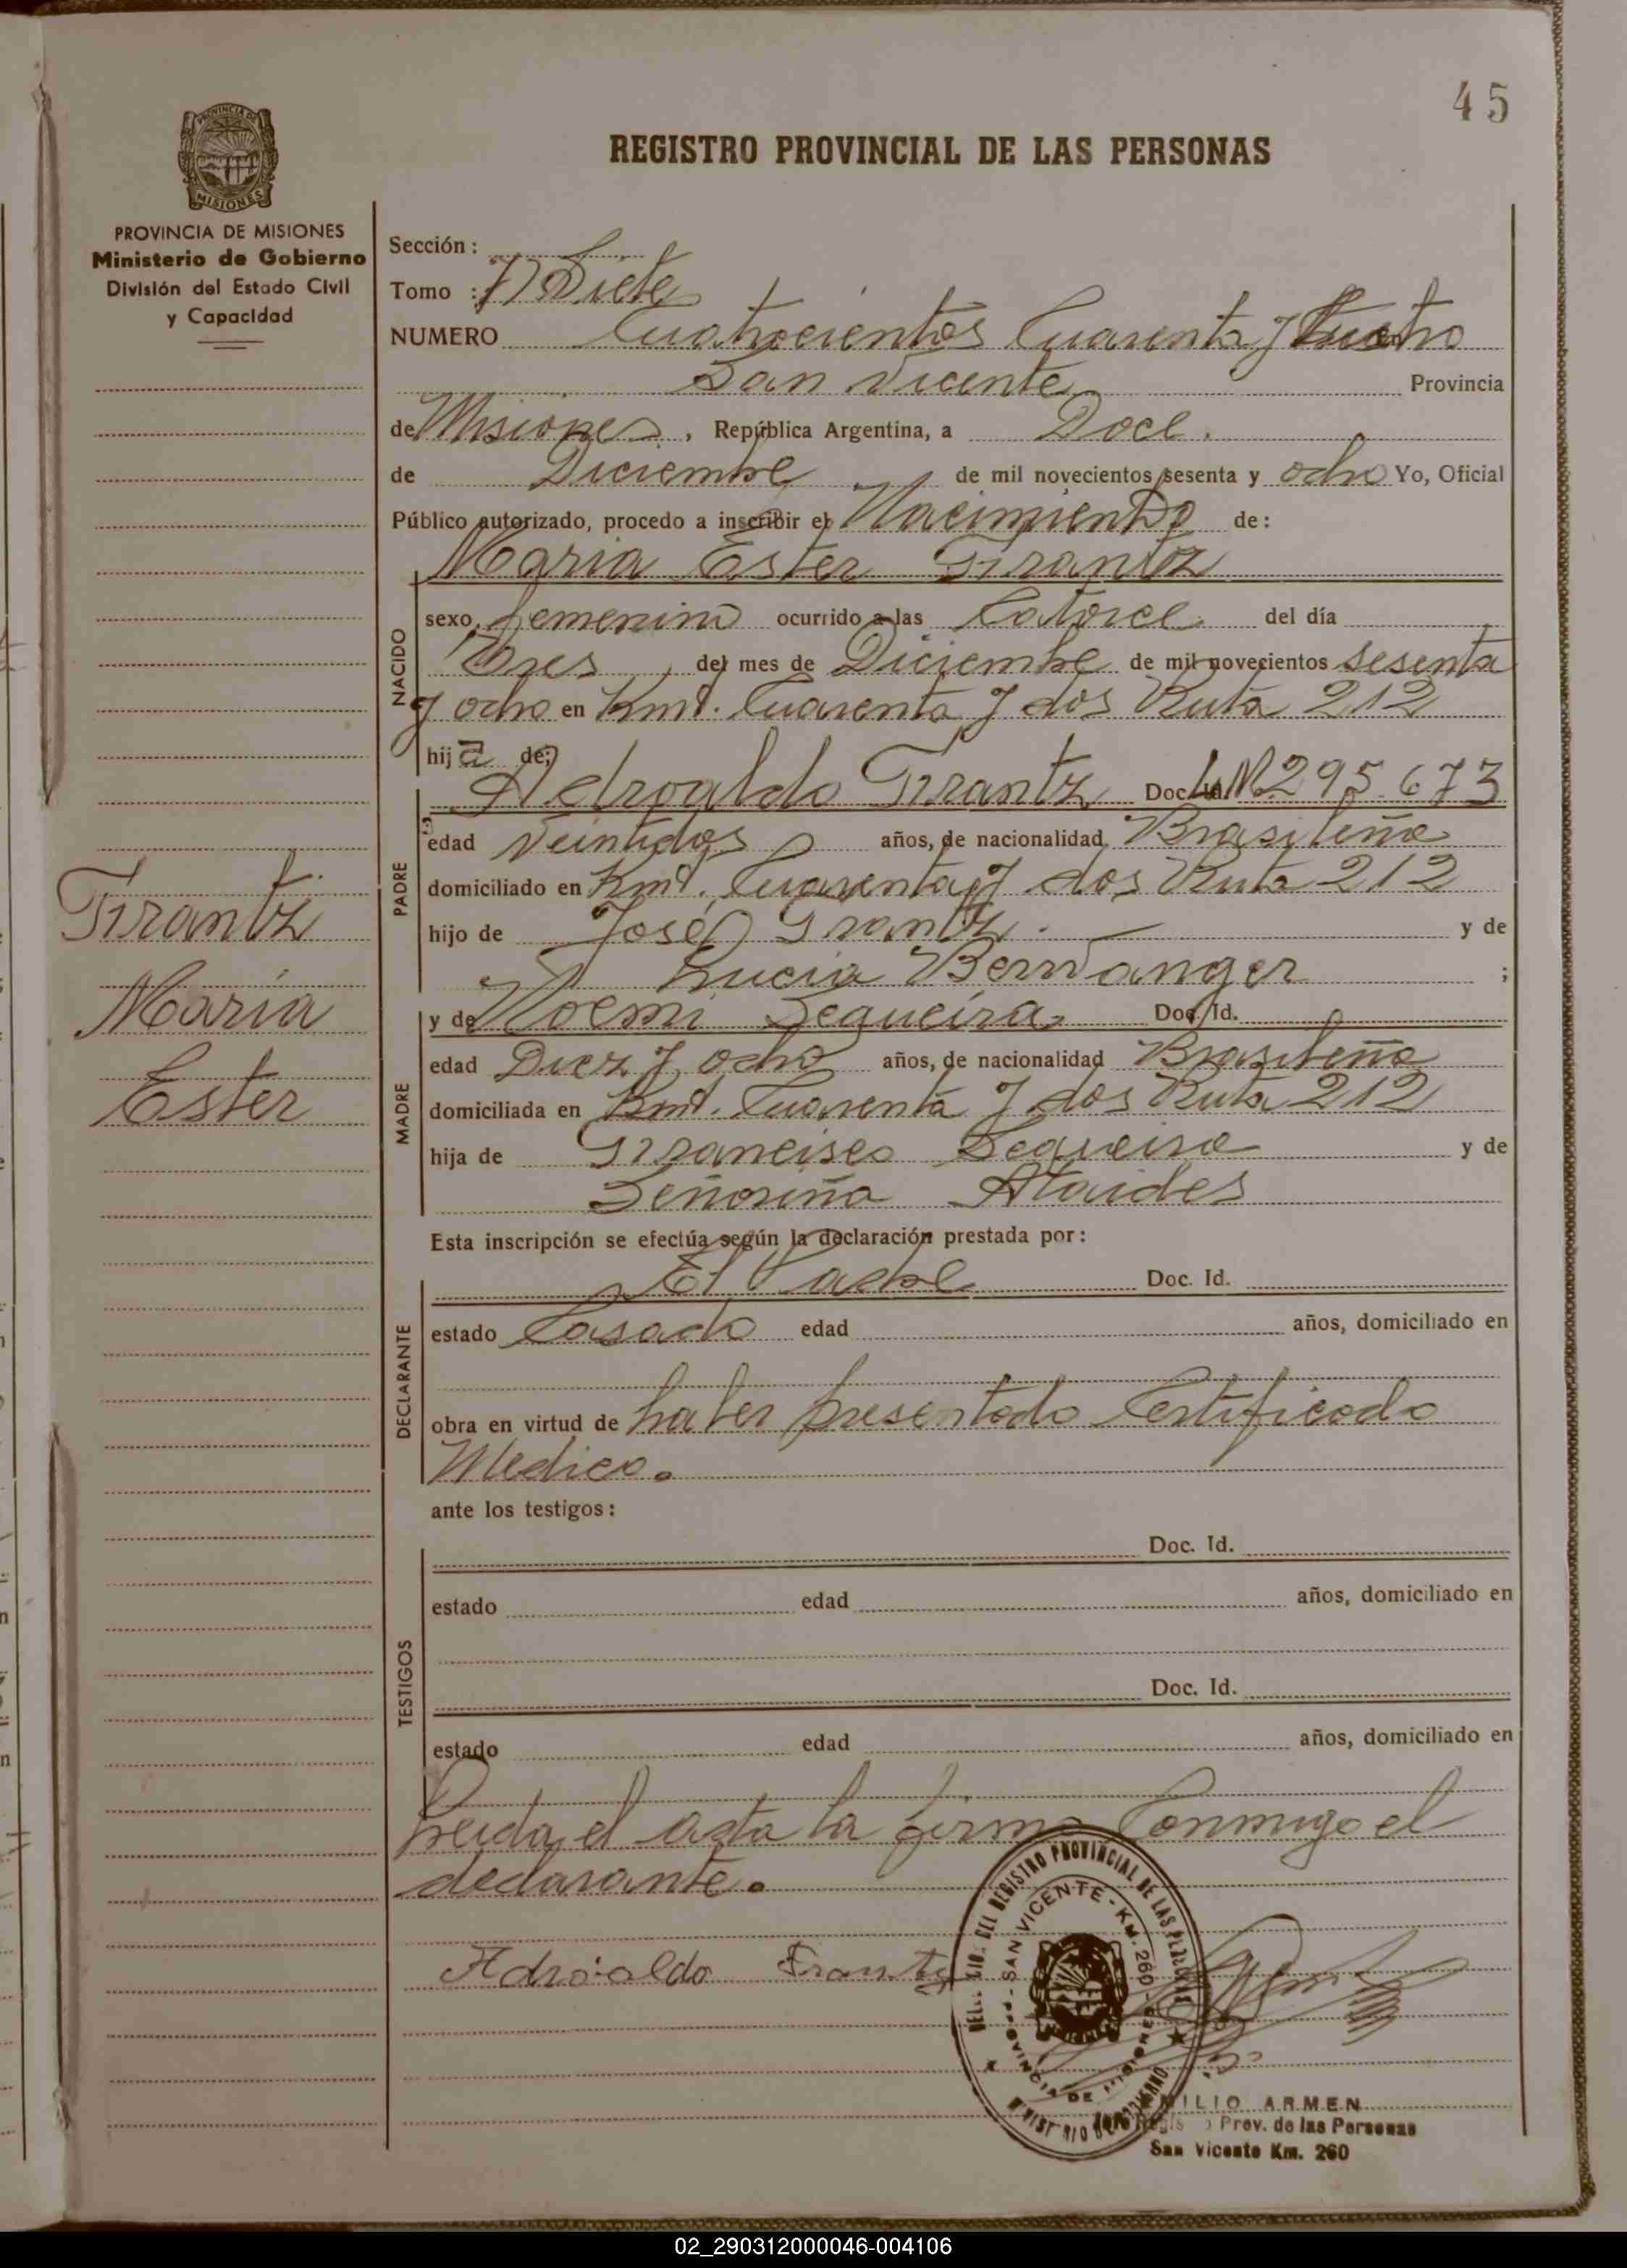 45
REGISTRO PROVINCIAL DE LAS PERSONAS
PROVINCIA DE
MISIONES
PROVINCIA DE MISIONES
Ministerio de Gobierno
División del Estado Civil
y Capacidad
Sección :
Tomo : Siete
NUMERO Cuatrocientos Cuarenta y Cuatro
San Vicente Provincia
de Misiones, República Argentina, a Doce.
de Diciembre de mil novecientos sesenta y ocho Yo, Oficial
Público autorizado, procedo a inscribir el Nacimiento de:
Maria Ester Frantz
NACIDO
sexo femenino ocurrido a las Catorce del día
Tres del mes de Diciembre de mil novecientos sesenta
y ocho en Kmt. Cuarenta y dos Ruta 212
hija de:
PADRE
Adroaldo Frantz Doc. Id. 295.673
edad Veintidos años, de nacionalidad Brasileña
domiciliado en Kmt. Cuarenta y dos Ruta 212
hijo de José Frantz. y de
Lucia Berwanger ;
MADRE
y de Noemi Sequeira Doc. Id.
edad Diez y ocho años, de nacionalidad Brasileña
domiciliada en Kmt. Cuarenta y dos Ruta 212
hija de Francisco Sequeira y de
Señoriña Ataides
Frantz
Maria
Ester
Esta inscripción se efectúa según la declaración prestada por:
DECLARANTE
El Padre Doc. Id.
estado Casado edad años, domiciliado en
obra en virtud de haber presentado Certificado
Medico.
ante los testigos:
TESTIGOS
Doc. Id.
estado edad años, domiciliado en
Doc. Id.
estado edad años, domiciliado en
Leida el acta la firma Conmigo el
declarante.
Adroaldo Frantz
DEL REGISTRO PROVINCIAL DE LAS PERSONAS
SAN VICENTE - KM. 260 - PROVINCIA DE MISIONES
MILIO ARMEN
Prov. de las Personas
San Vicente Km. 260
02_290312000046-004106